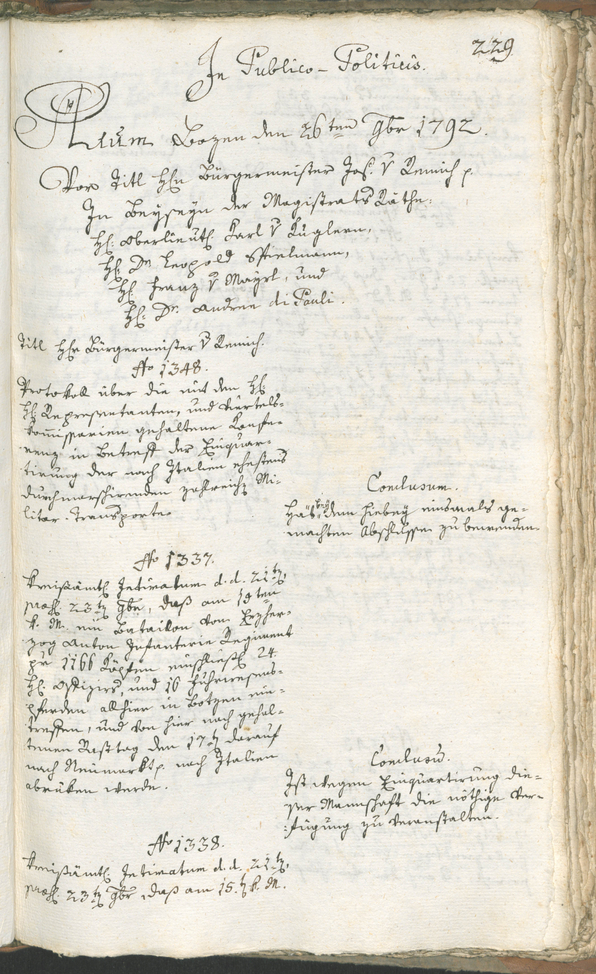 229
In Publico-Politicis.
Actum Bozen den 26ten 9br 1792.
Vor Titl Hrn Bürgermeister Jos. v Remich p.
In Beyseyn der Magistrats Räthe:
H: Oberlieut: Karl v Kuglern,
H: Dr Leopold Stielmann,
H: Franz v Mayrl, und
H: Dr. Andree di Pauli.
Titl Hrn Bürgermeister v Remich.
No 1348.
Protokoll über die mit den H
H Repräsentanten, und Viertels-
kommissarien gehaltene Konfe-
renz in Betreff der Einquar-
tirung der nach Italien ehestens
durchmarschirenden zahlreich: Mi-
litar-transporte
Conclusum.
Hat es bey dem hiebey einsmals ge-
machten Abschlussen zu bewenden.
No 1337.
Kreisämtl: Intimatum d.d. 21tn
pras: 23tn 9br, daß am 15ten
k. M. ein Batailon vom Erzher-
zog Anton Infanterie Regiment
pr 1166 Köpfen einschließl: 24
H: Offiziers, und 16 Fuhrwesens-
pferden allhier in Botzen ein-
treffen, und von hier nach gehal-
tenen Rasttag den 17tn darauf
nach Neumarkt p. nach Italien
abrüken werde.
Conclusum.
Ist wegen Einquartirung die-
ser Mannschaft die nöthige Ver-
fügung zu veranstalten.
No 1338.
Kreisämtl: Intimatum d.d. 21tn
pras: 23tn 9br daß am 15. tn k. M.